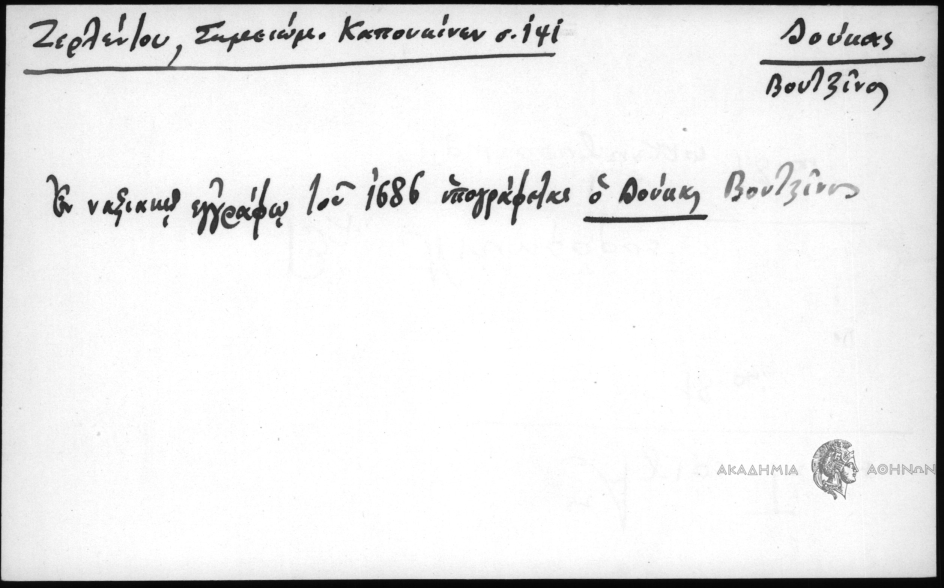 Ζερλέντου, Σημειώμ. Καπουκίνων σ. 141
Δούκας
Βουτζῖνος
Ἐν ναξιακῷ ἐγγράφῳ τοῦ 1686 ὑπογράφεται ὁ Δούκας Βουτζῖνος
ΑΚΑΔΗΜΙΑ ΑΘΗΝΩΝ